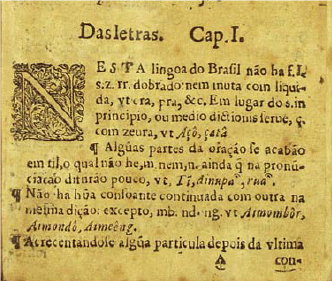 Das letras. Cap. I.
NESTA lingoa do Brasil não ha f. l.
s. z. rr. dobrado nem muta com liqui-
da, vt cra, pra, &c. Em lugar do s. in
principio, ou medio dictionis serue, ç.
com zeura, vt Açô, çatâ
¶ Algũas partes da oração se acabão
em til, o qual não he, m, nem, n, ainda q̃ na pronũ-
ciação difirão pouco, vt, Tĩ, ainupã, ruã.
¶ Não ha hũa consoante continuada com outra na
mesma dição: excepto, mb. nd. ng. vt Aimombôr,
Aimondô, Aimeẽng.
¶ Acrecentandose algũa particula depois da vltima
A con-